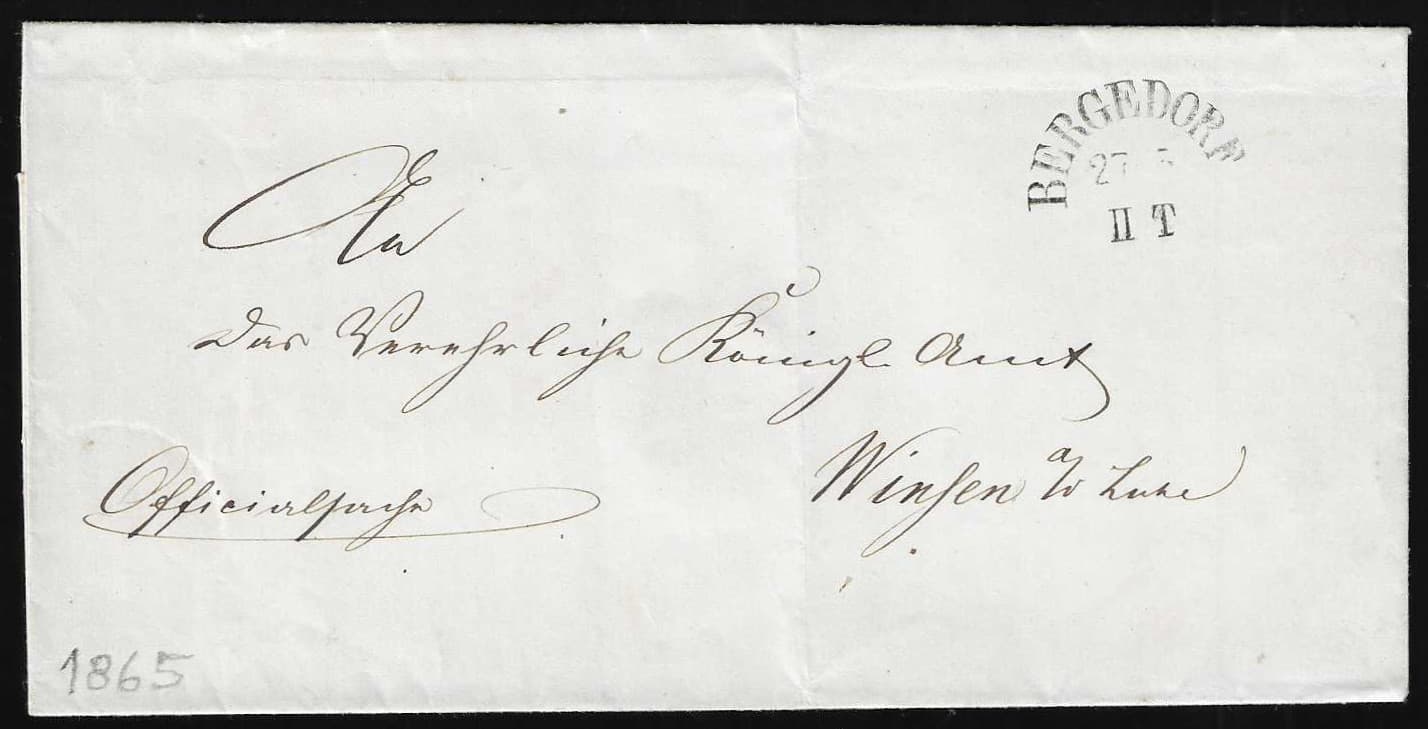 BERGEDORF
27
II T
An
das Verehrliche Königl. Amt
Winsen a/d Luhe
Officialsache
1865